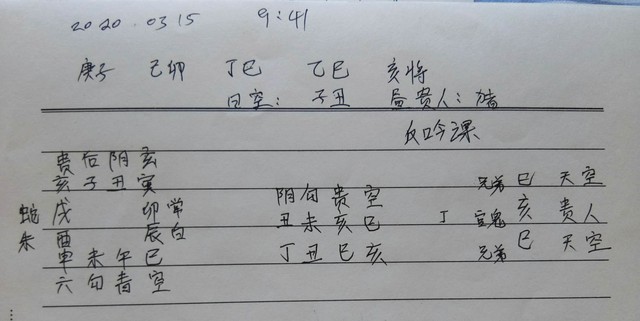 2020.03.15 9:41
庚子 己卯 丁巳 乙巳 亥将
日空: 子丑 昼贵人: 猪
反吟课
贵后阴玄
亥子丑寅 阴勾贵空 兄弟 巳 天空
蛇 戌 卯常 丑未亥巳 丁 官鬼 亥 贵人
朱 酉 辰白
申未午巳 丁丑巳亥 兄弟 巳 天空
六勾青空